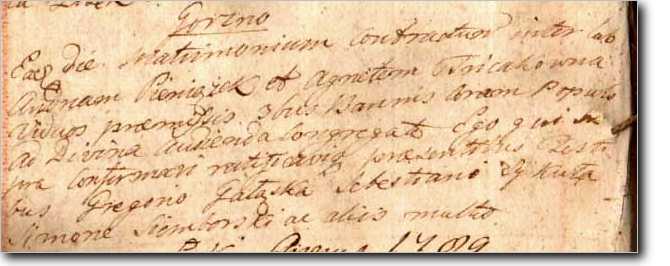 Gorzno
Eaq die Matrimonium contractum inter lab
Antonam Pieniążek et Agnetem Trzcakowna
viduos præmissis 3bus Bannis coram Populo
ad Divina audienda congregat Ego qui su
pra confirmavi ratificaviq præsentibus Testi
bus Gregorio Gałąska Sebestiano
Simone Siemborski ac aliis multo.
1789